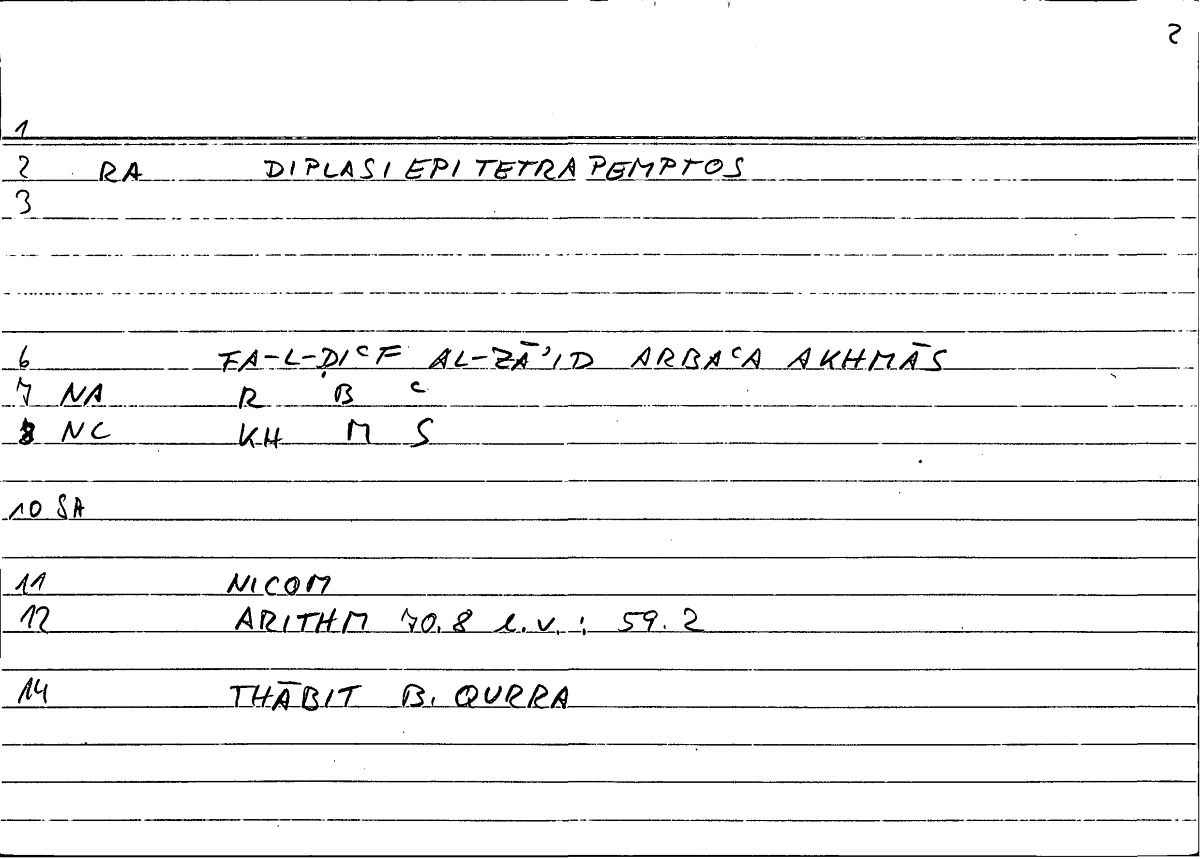 2
1
2 RA DIPLASI EPI TETRA PEMPTOS
3
6 FA-L-ḌIᶜF AL-ZĀʾID ARBAᶜA AKHMĀS
7 NA R B ᶜ
8 NC KH M S
10 SA
11 NICOM
12 ARITHM 70.8 l.v.: 59.2
14 THĀBIT B. QURRA